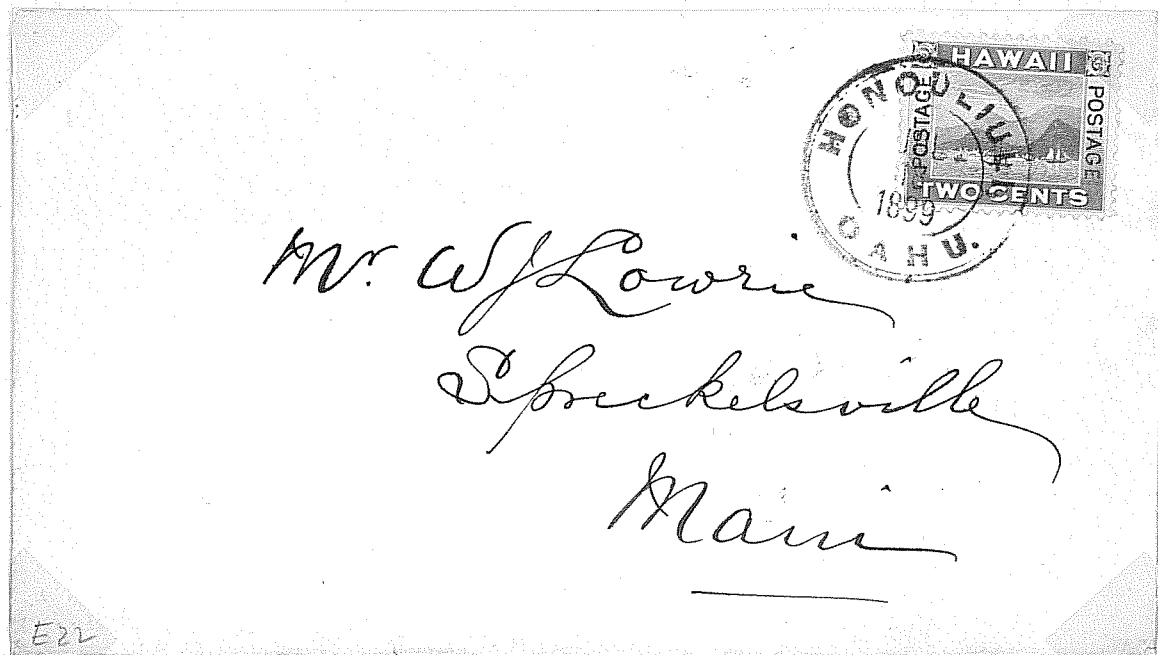 HAWAII
POSTAGE
POSTAGE
TWO CENTS
HONOULIULI
1899
OAHU.
Mr. W J Lowrie
Spreckelsville
Maui
E22